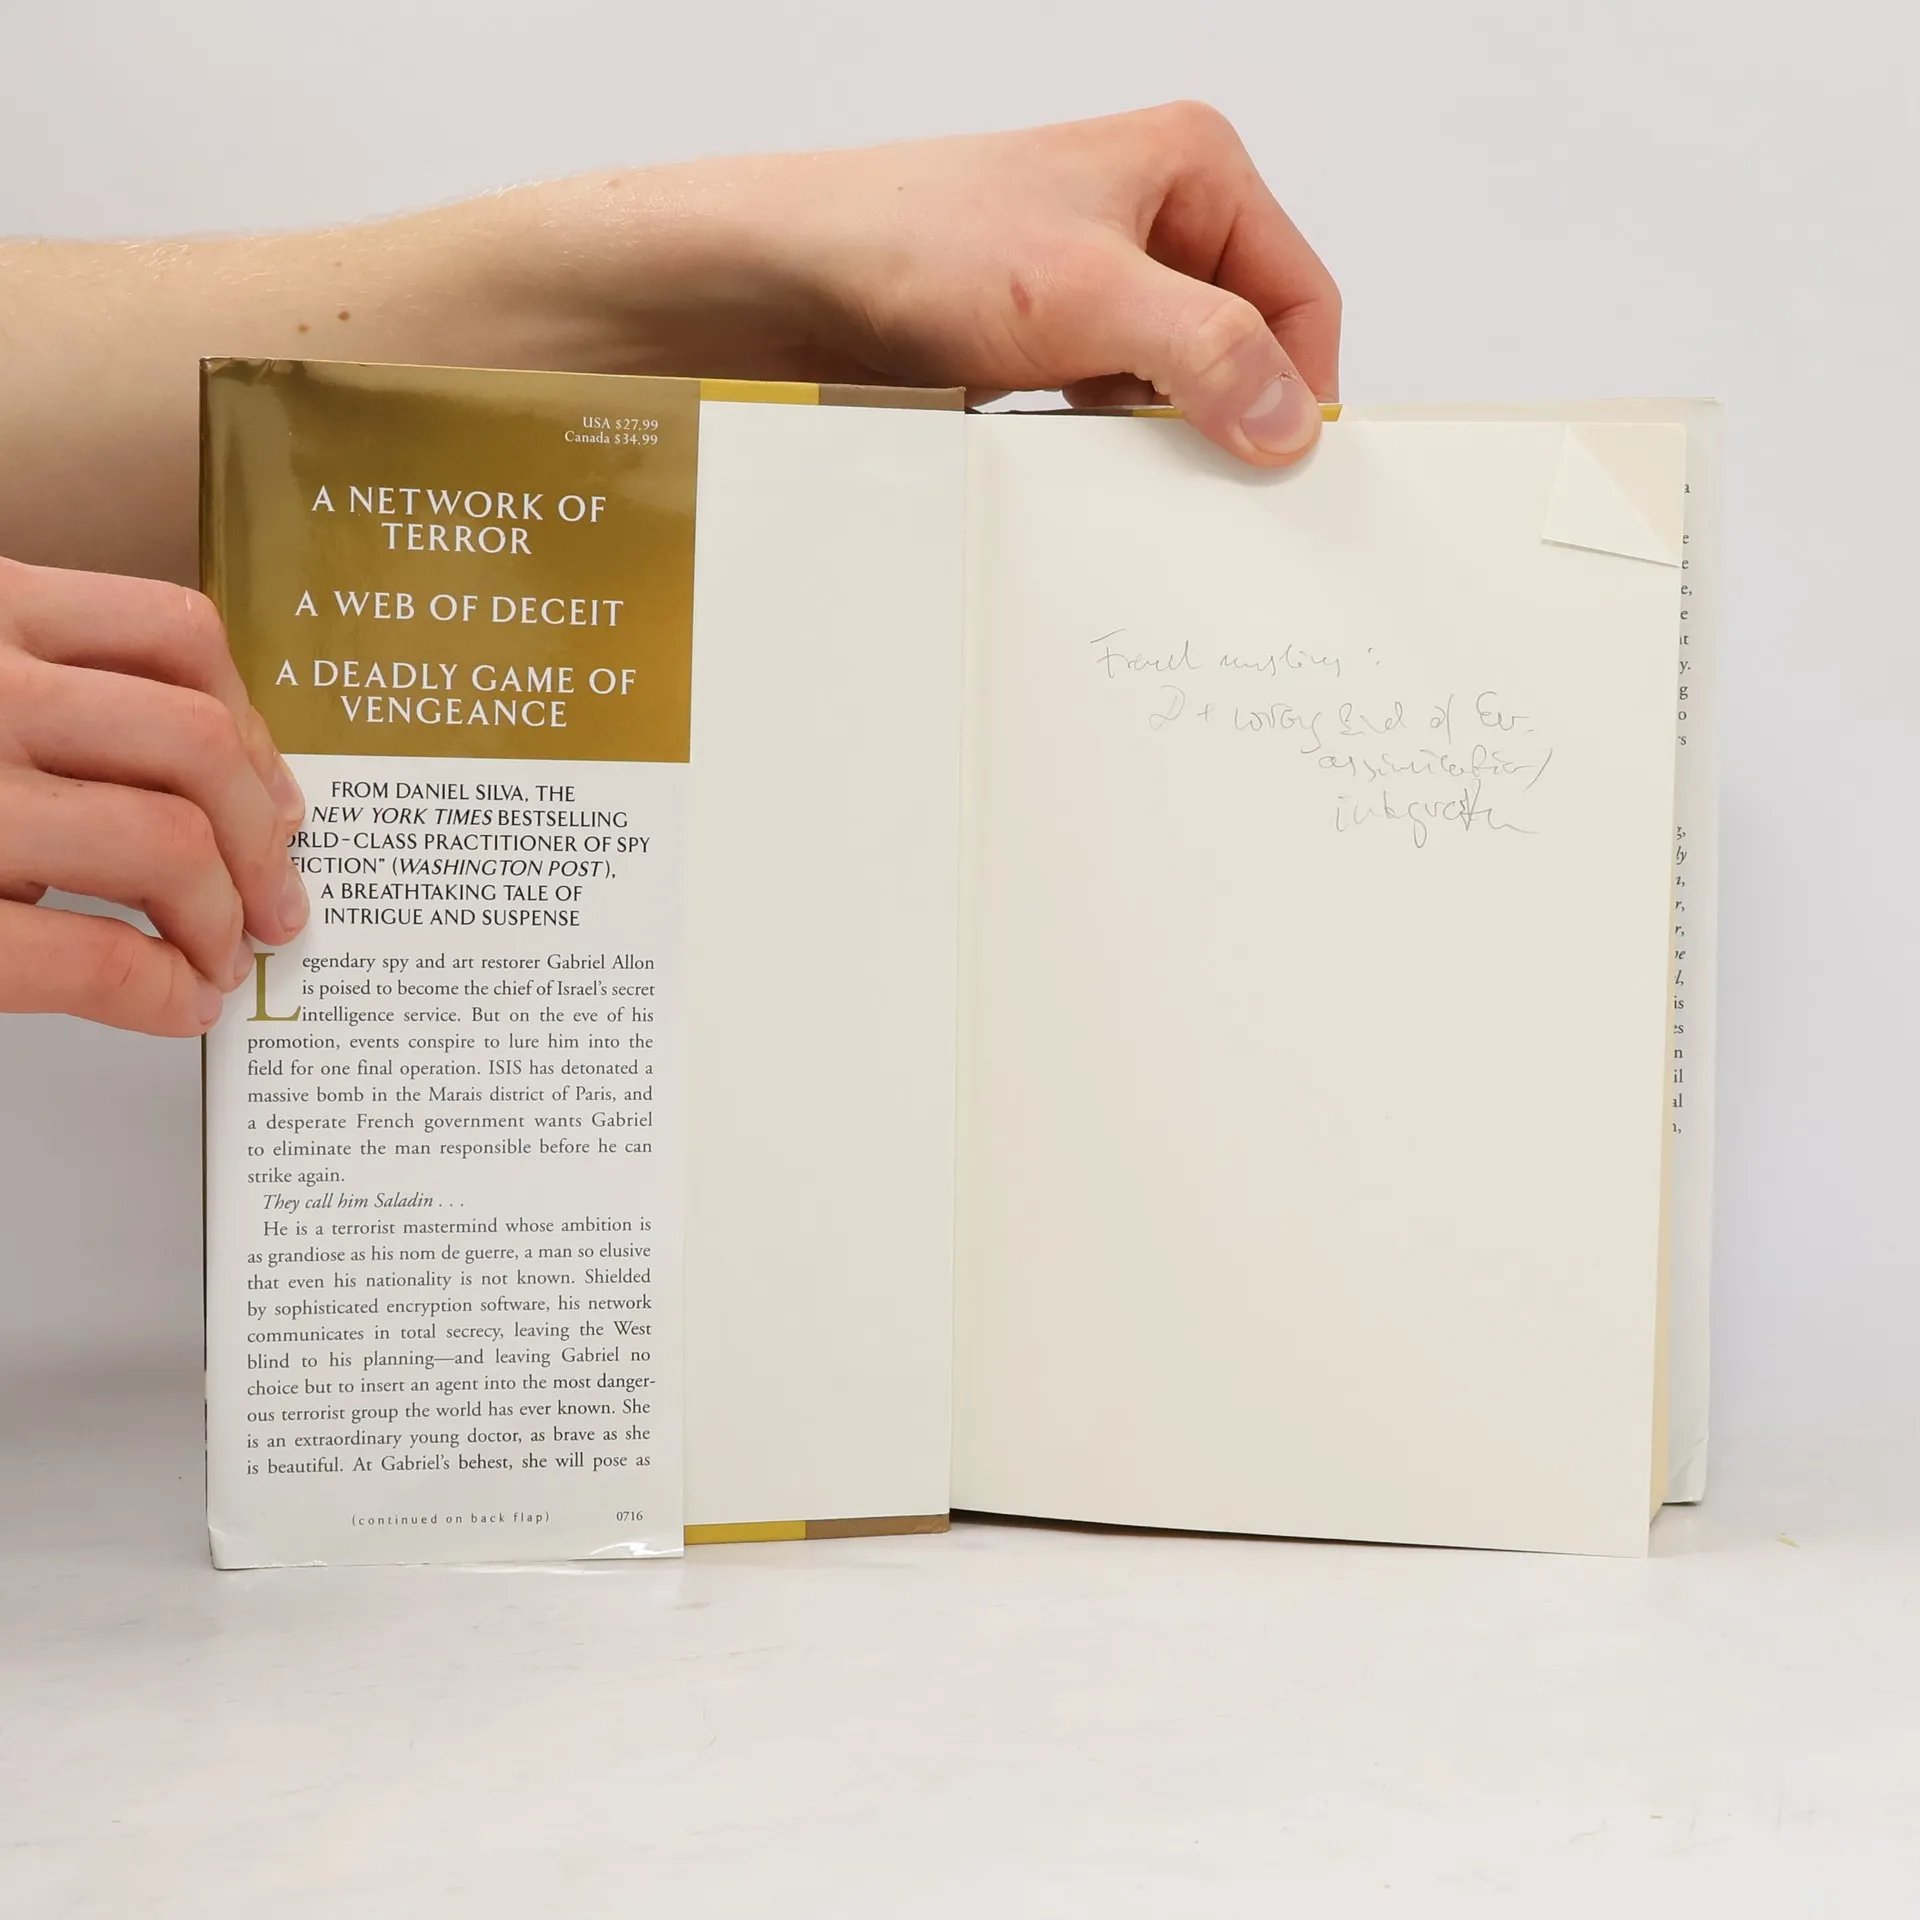 USA $27.99
Canada $34.99
A NETWORK OF
TERROR
A WEB OF DECEIT
A DEADLY GAME OF
VENGEANCE
FROM DANIEL SILVA, THE
NEW YORK TIMES BESTSELLING
ORLD-CLASS PRACTITIONER OF SPY
FICTION” (WASHINGTON POST),
A BREATHTAKING TALE OF
INTRIGUE AND SUSPENSE
Legendary spy and art restorer Gabriel Allon
is poised to become the chief of Israel’s secret
intelligence service. But on the eve of his
promotion, events conspire to lure him into the
field for one final operation. ISIS has detonated a
massive bomb in the Marais district of Paris, and
a desperate French government wants Gabriel
to eliminate the man responsible before he can
strike again.
They call him Saladin . . .
He is a terrorist mastermind whose ambition is
as grandiose as his nom de guerre, a man so elusive
that even his nationality is not known. Shielded
by sophisticated encryption software, his network
communicates in total secrecy, leaving the West
blind to his planning—and leaving Gabriel no
choice but to insert an agent into the most danger-
ous terrorist group the world has ever known. She
is an extraordinary young doctor, as brave as she
is beautiful. At Gabriel’s behest, she will pose as
(continued on back flap) 0716
French
wrong end of
assimilation/
integration